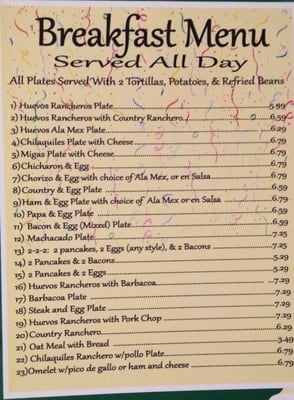 Breakfast Menu
Served All Day
All Plates Served With 2 Tortillas, Potatoes, & Refried Beans
1) Huevos Rancheros Plate 5.99
2) Huevos Rancheros with Country Ranchero 6.59
3) Huevos Ala Mex Plate 6.29
4)Chilaquiles Plate with Cheese 6.79
5) Migas Plate with Cheese 6.79
6)Chicharon & Egg 6.79
7)Chorizo & Egg with choice of Ala Mex, or en Salsa 6.79
8) Country & Egg Plate 6.59
9)Ham & Egg Plate with choice of Ala Mex or en Salsa 6.79
10) Papa & Egg Plate 6.59
11) Bacon & Egg (Mixed) Plate 6.59
12) Machacado Plate 7.25
13) 2-2-2: 2 pancakes, 2 Eggs (any style), & 2 Bacons 7.25
14) 2 Pancakes & 2 Bacons 5.29
15) 2 Pancakes & 2 Eggs 5.29
16) Huevos Rancheros with Barbacoa 7.29
17) Barbacoa Plate 7.29
18) Steak and Egg Plate 7.29
19) Huevos Rancheros with Pork Chop 7.29
20)Country Ranchero 6.29
21) Oat Meal with Bread 3.49
22) Chilaquiles Ranchero w/pollo Plate 6.79
23)Omelet w/pico de gallo or ham and cheese 6.79